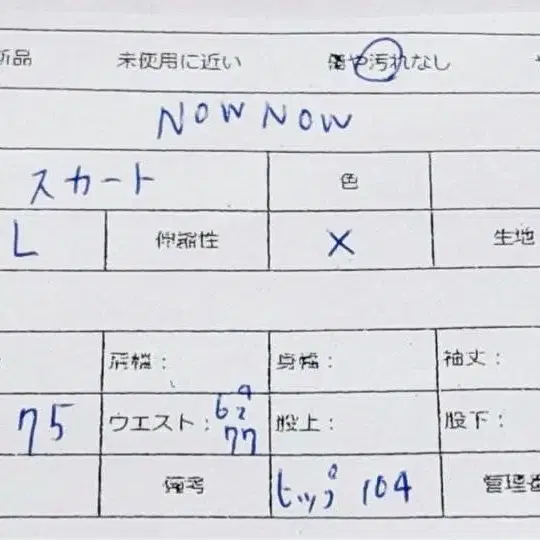 新品 未使用に近い 傷や汚れなし
NOW NOW
スカート 色
L 伸縮性 × 生地
肩幅： 身幅： 袖丈：
75 ウエスト：62 77 股上： 股下：
備考 ヒップ 104 管理番